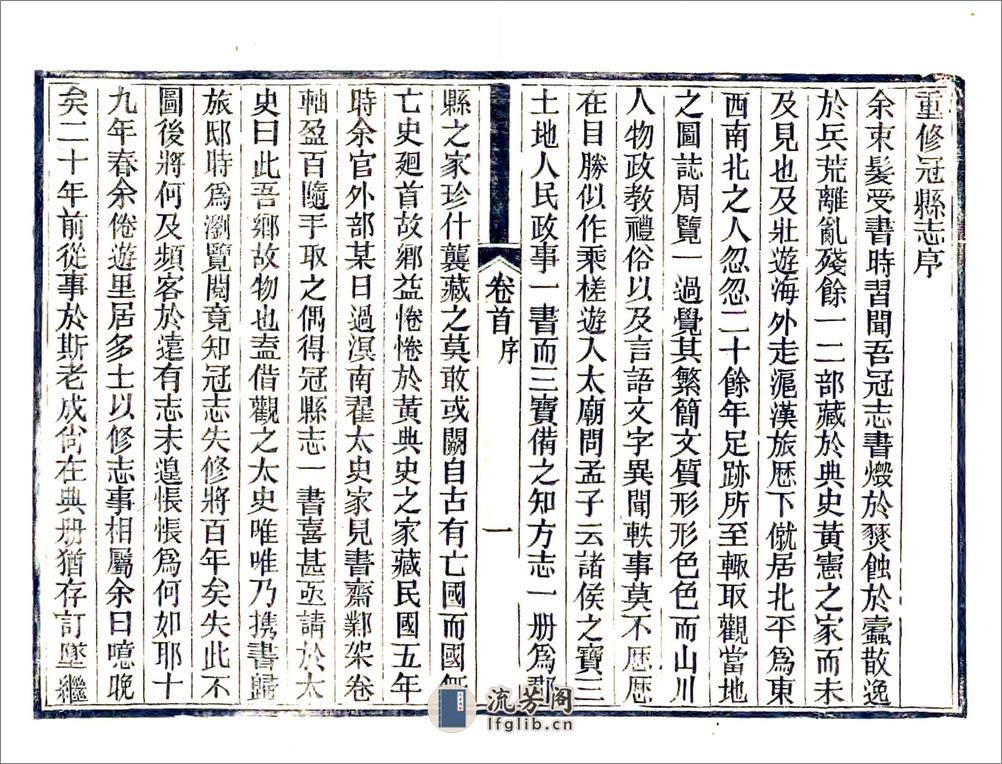 重修冠縣志序
余束髮受書時習聞吾冠志書燬於燹蝕於蠹散逸
於兵荒離亂殘餘一二部藏於典史黃憲之家而未
及見也及壯遊海外走滬漢旅歷下僦居北平爲東
西南北之人忽忽二十餘年足跡所至輒取觀當地
之圖誌周覽一過覺其繁簡文質形形色色而山川
人物政教禮俗以及言語文字異聞軼事莫不歷歷
在目勝似作乘槎遊入太廟問孟子云諸侯之寶三
土地人民政事一書而三寶備之知方志一册爲郡
卷首
序
一
縣之家珍什襲藏之莫敢或闕自古有亡國而國無
亡史廻首故鄉益惓惓於黃典史之家藏民國五年
時余官外部某日過溟南翟太史家見書齋鄴架卷
軸盈百隨手取之偶得冠縣志一書喜甚亟請於太
史曰此吾鄉故物也盍借觀之太史唯唯乃携書歸
旅邸時爲瀏覽閱竟知冠志失修將百年矣失此不
圖後將何及頻客於遠有志未遑悵悵爲何如耶十
九年春余倦遊里居多士以修志事相屬余曰噫晚
矣二十年前從事於斯老成尙在典册猶存訂墜繼
流芳阁
lfglib.cn